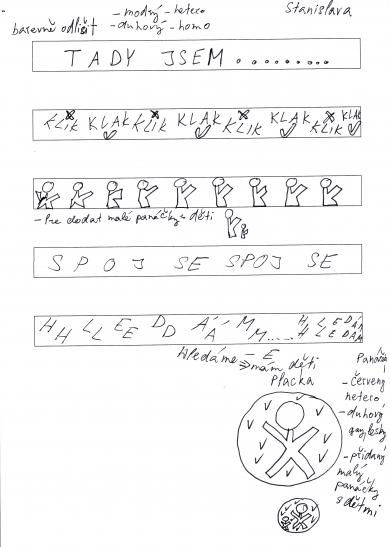 Stanislava
- modrý - hetero
barevně odlišit - duhový - homo
TADY JSEM..........
KLIK KLAK KLIK KLAK KLIK KLAK KLIK KLAK
- Pre dodat malé panáčky - děti
SPOJ SE SPOJ SE
HHLLEEDDÁÁMM..... HHLLEEDDÁÁMM
Hledáme - E
mám děti
Placka
Panáčci
- červený
hetero
- duhový
gay, lesby
- přidaný
malý
panáčky
s dětmi